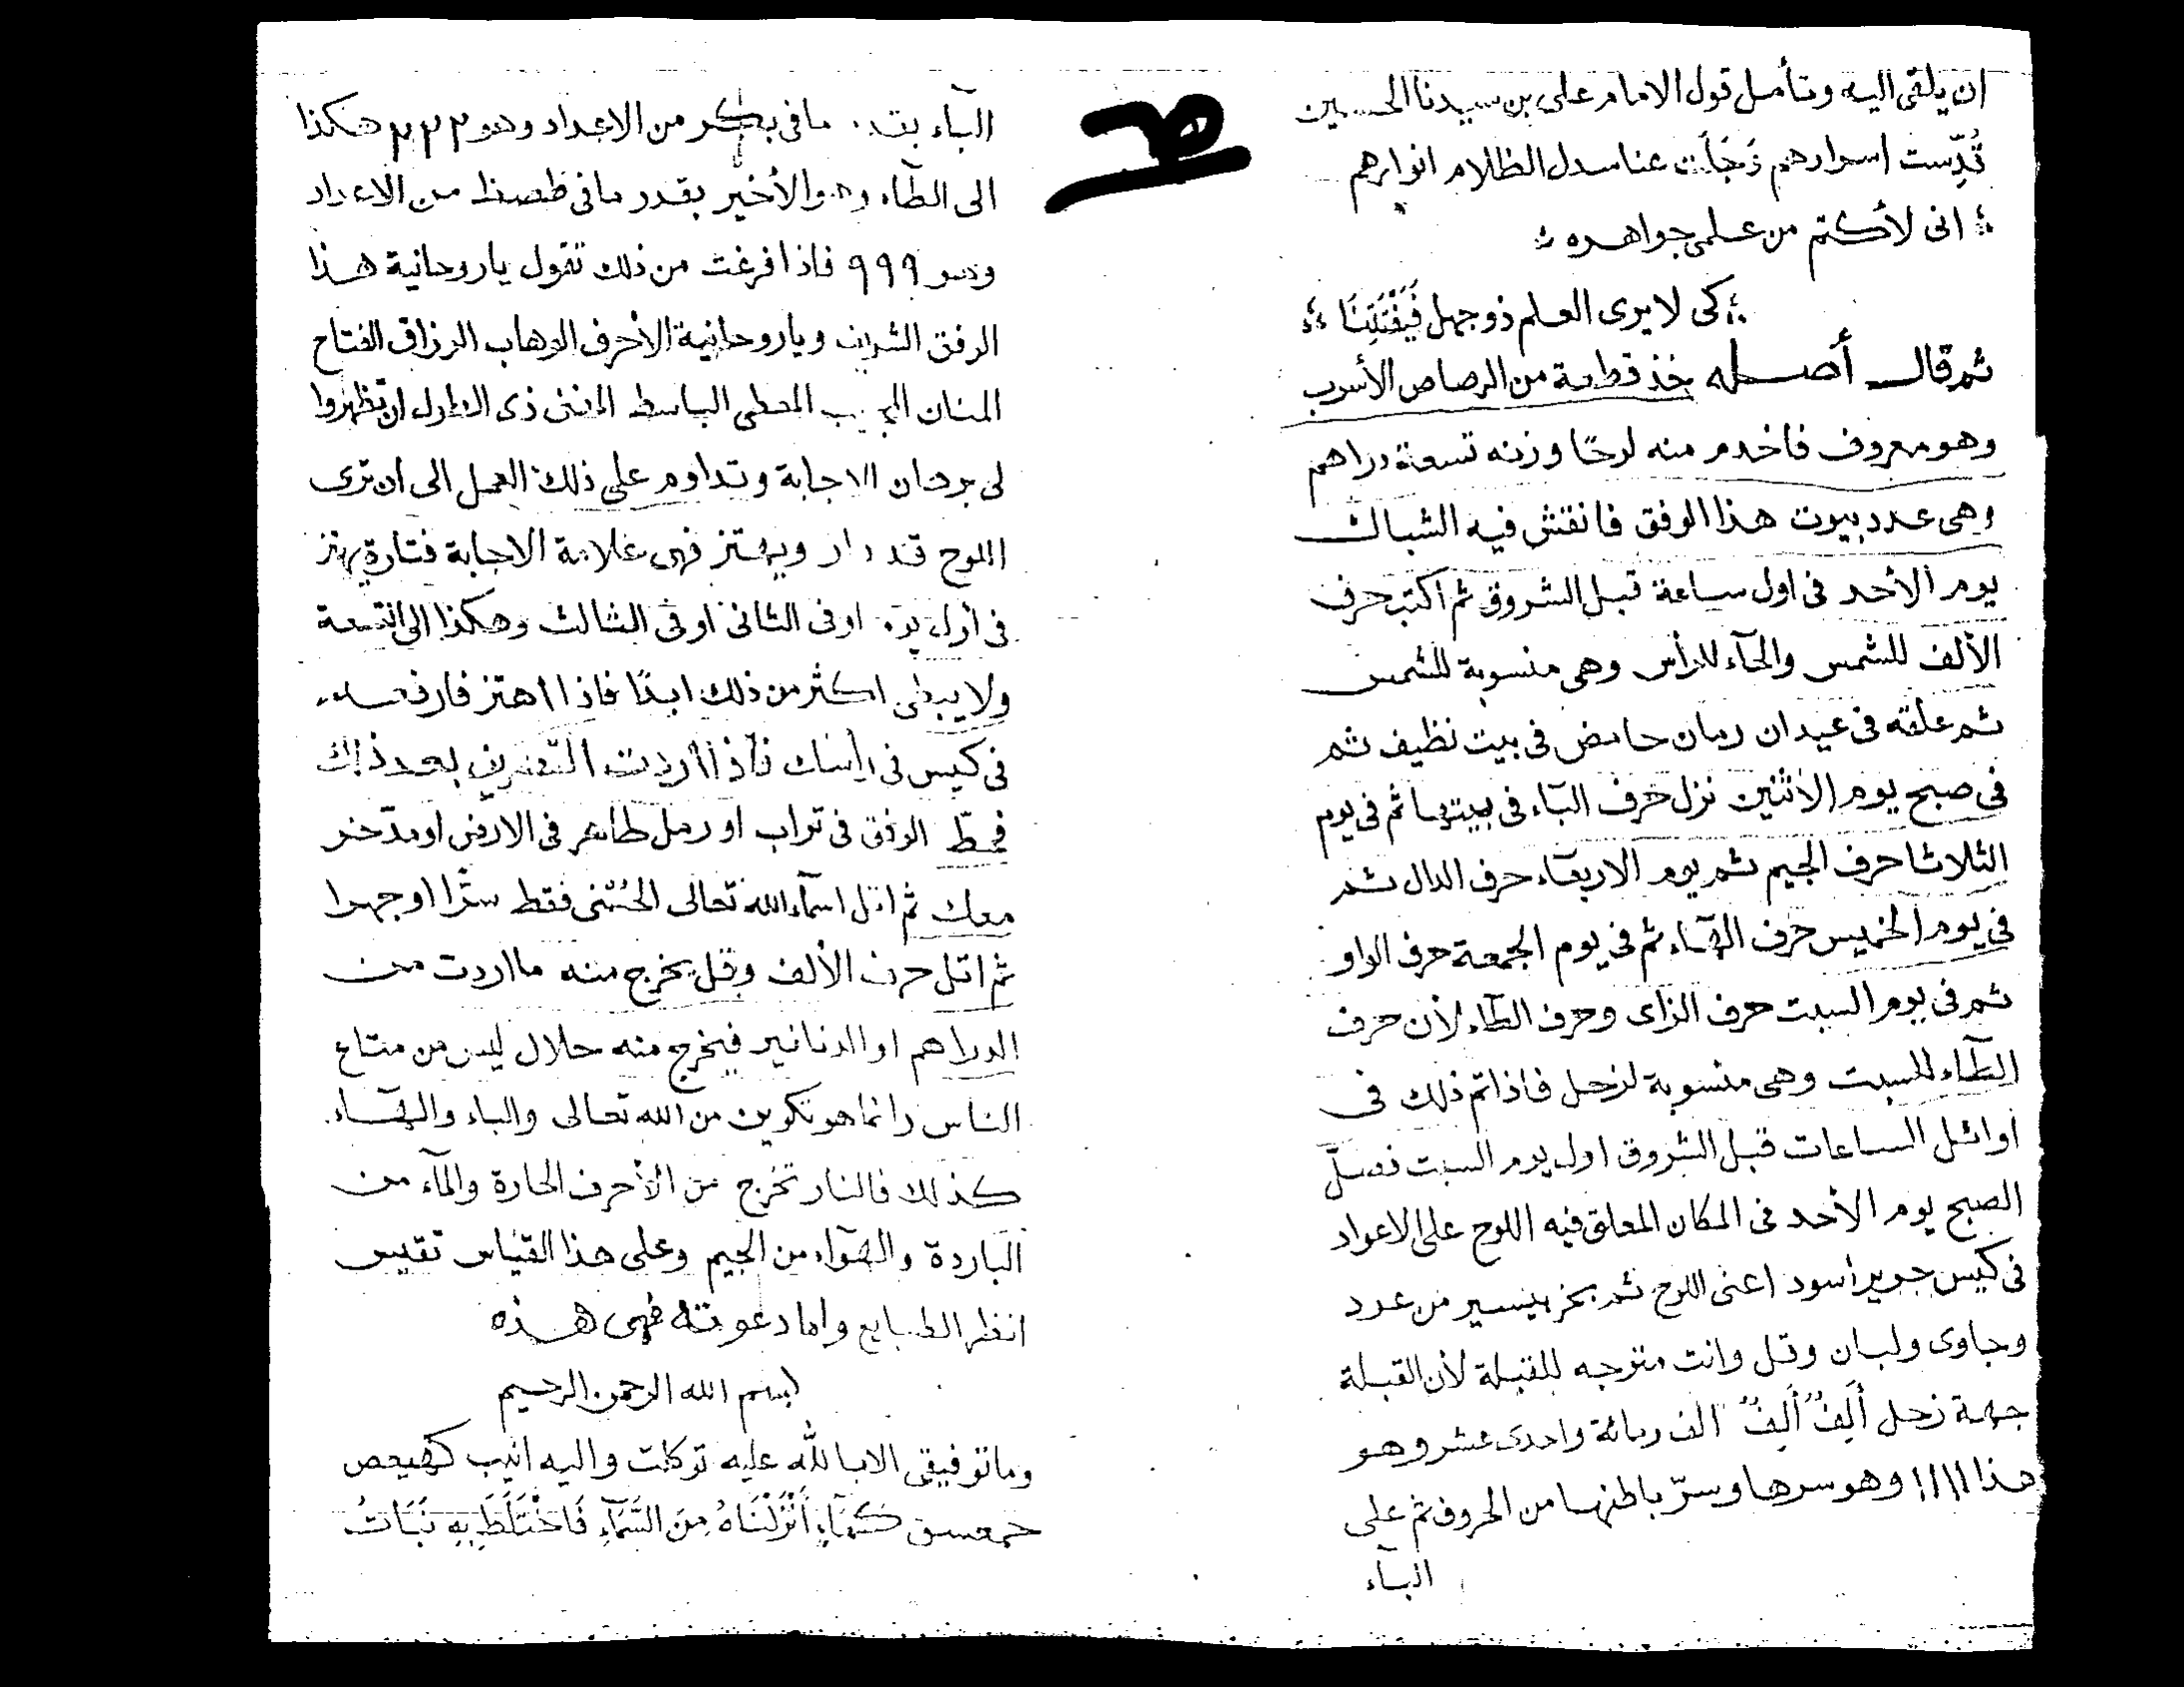 ان يلقى اليه وتأمل قول الامام على بن سيدنا الحسين
قُدِّست اسرارهم وَجَلَت عنا سدل الظلام انوارهم
انى لأكتم من علمى جواهره
كى لا يرى العلم ذو جهل فَيَفْتَتِنَا
ثم قال أصله خذ قطعة من الرصاص الأسرب
وهو معروف فاخدم منه لوحًا وزنه تسعة دراهم
وهى عدد بيوت هذا الوفق فانقش فيه الشباك
يوم الأحد فى اول ساعة قبل الشروق ثم اكتب حرف
الألف للشمس والحآء للرأس وهى منسوبة للشمس
ثم علقه فى عيدان رمان حامض فى بيت نظيف ثم
فى صبح يوم الأثنين نزل حرف البآء فى بيتها ثم فى يوم
الثلاثا حرف الجيم ثم يوم الاربعآء حرف الدال ثم
فى يوم الخميس حرف الهآء ثم فى يوم الجمعة حرف الواو
ثم فى يوم السبت حرف الزاى وحرف الطآء لأن حرف
الطآء للسبت وهى منسوبة لزحل فاذا تم ذلك فى
اوائل الساعات قبل الشروق اول يوم السبت فصلّ
الصبح يوم الأحد فى المكان المعلق فيه اللوح على الاعواد
فى كيس حرير اسود اعنى اللوح ثم بخر بيسير من عود
وجاوى ولبان وقل وانت متوجه للقبلة لأن القبلة
جهة زحل أَلِفٌ أَلِفٌ الف ومائة واحدى عشر وهو
هذا ١١١١ وهو سرها وسرّ باطنها من الحروف ثم على
البآء
البآء بقدر ما فى بكر من الاعداد وهو ٢٢٢ هكذا
الى الطآء وهو الأخير بقدر ما فى طصظ من الاعداد
وهو ٩٩٩ فاذا فرغت من ذلك تقول يا روحانية هذا
الوفق الشريف ويا روحانية الأحرف الوهاب الرزاق الفتاح
المنان المجيب المعطى الباسط المغنى ذى الطول ان تظهروا
لى برهان الاجابة وتداوم على ذلك العمل الى أن ترى
اللوح قد دار ويهتز فهى علامة الاجابة فتارة يهتز
فى أول يوم او فى الثانى او فى الثالث وهكذا الى التسعة
ولا يبطى اكثر من ذلك ابدًا فاذا اهتز فارفعه
فى كيس فى راسك فأذا اردت التصريف بعد ذلك
فحطّ الوفق فى تراب او رمل طاهر فى الارض او مدّخر
معك ثم اتل اسمآء الله تعالى الحُسْنى فقط سرًّا او جهرا
ثم اتل حرف الألف وقل يخرج منه ما اردت من
الدراهم او الدنانير فيخرج منه حلال ليس من متاع
الناس وانما هو تكوين من الله تعالى والباء والهآء
كذلك فالنار تخرج من الأحرف الحارة والمآء من
الباردة والهوآء من الجيم وعلى هذا القياس تقيس
انظر الطبايع واما دعوته فهى هذه
بسم الله الرحمن الرحيم
وما توفيقى الا بالله عليه توكلت واليه انيب كهيعص
حمعسق كَمَآءٍ أَنْزَلْنَاهُ مِنَ السَّمَآءِ فَاخْتَلَطَ بِهِ نَبَاتُ